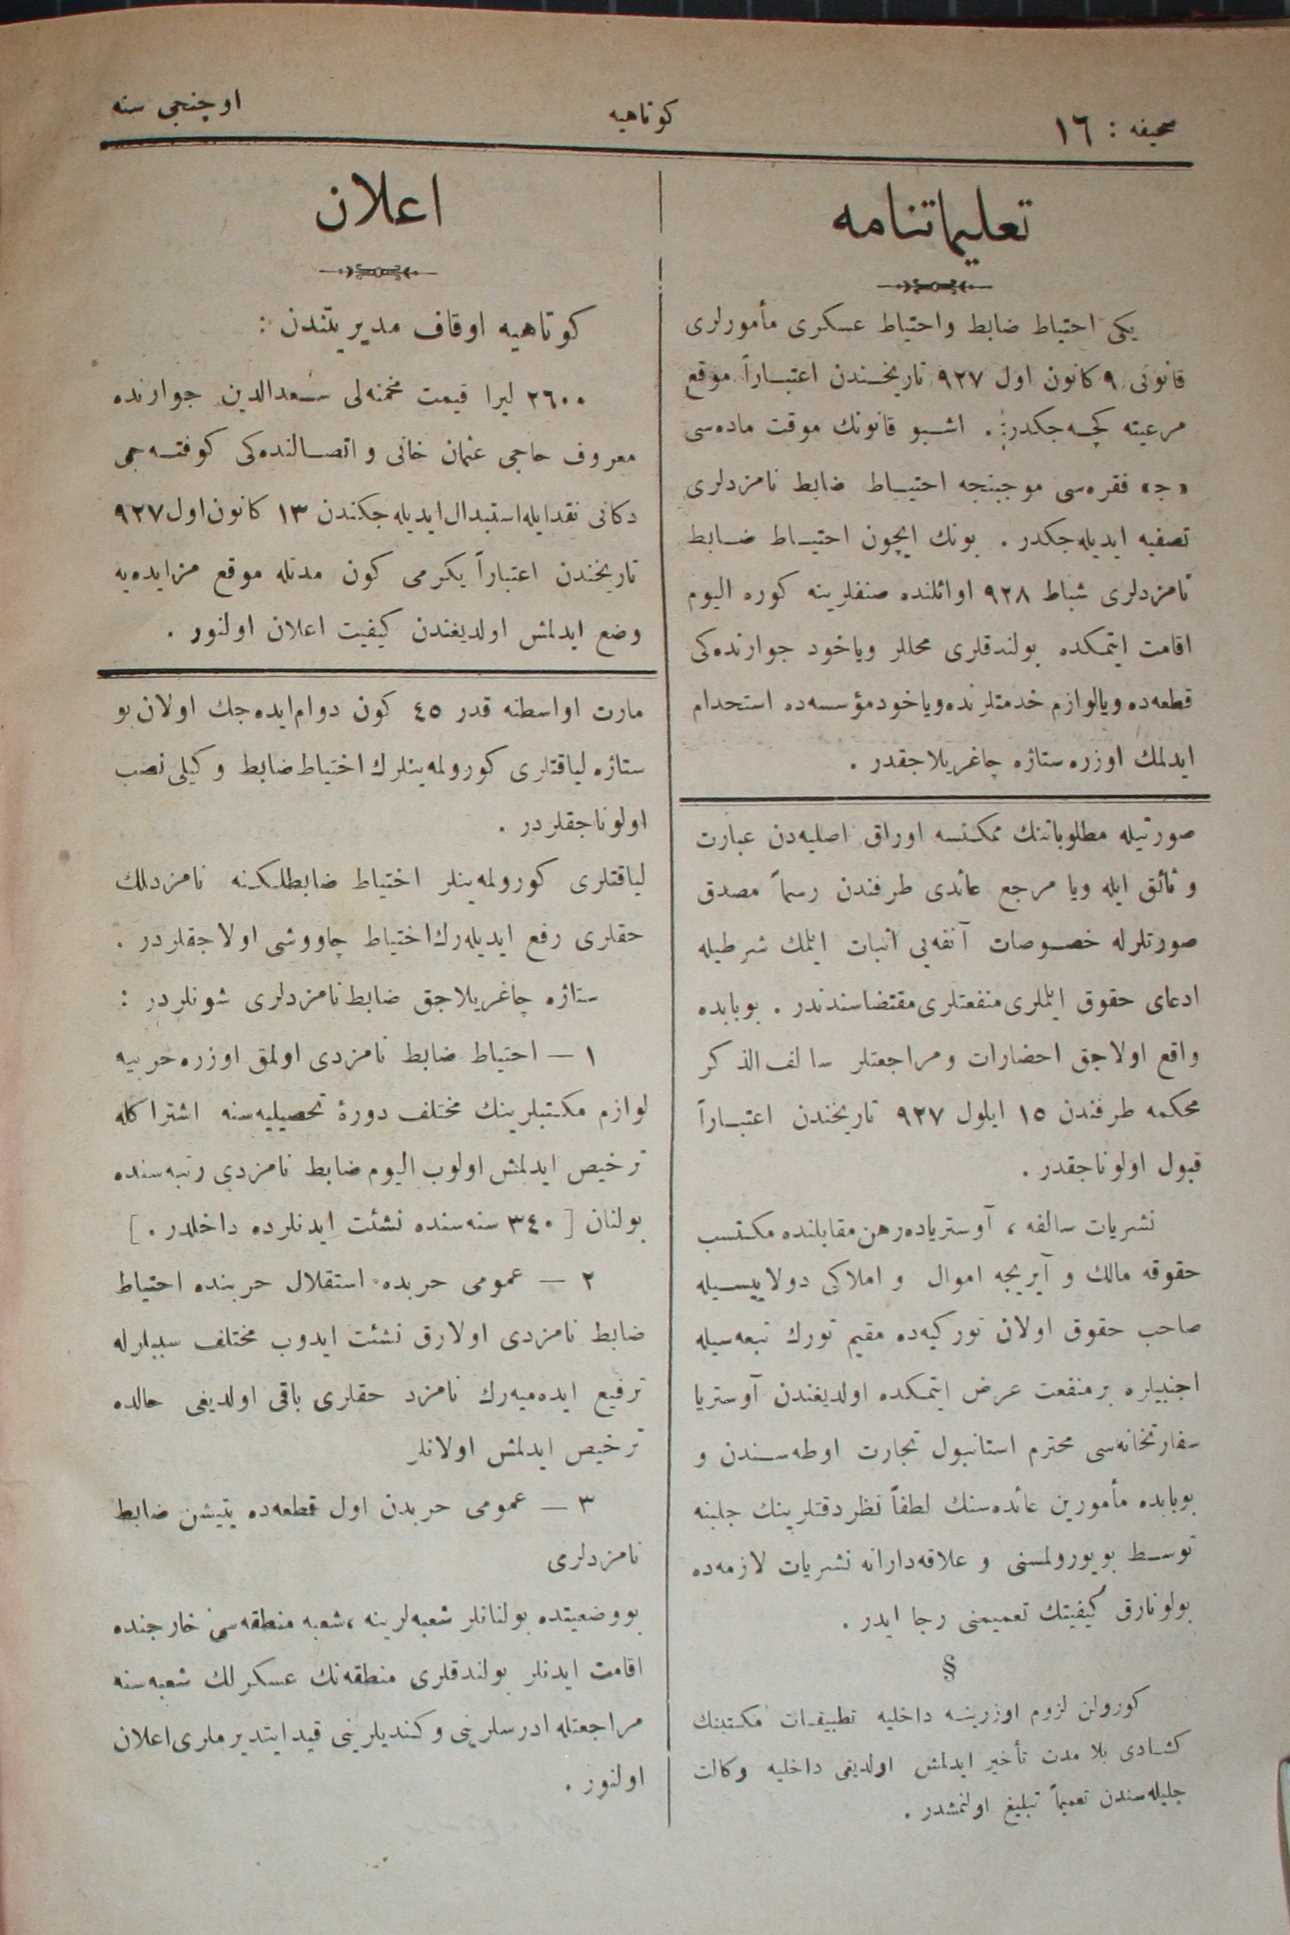 صحیفه : ١٦
كوتاهیه
اوچنجی سنه
تعلیماتنامه
یكی احتیاط ضابط واحتیاط عسكری مأمورلری
قانونی ٩ كانون اول ٩٢٧ تاریخندن اعتباراً موقع
مرعیته كچه‌جكدر. اشبو قانونك موقت ماده‌سی
«ج» فقره‌سی موجبنجه احتیاط ضابط نامزدلری
تصفیه ایدیله‌جكدر . بونك ایچون احتیاط ضابط
نامزدلری شباط ٩٢٨ اوائلنده صنفلرینه كوره الیوم
اقامت ایتمكده بولندقلری محللر ویاخود جوارنده‌كی
قطعه‌ده ویالوازم خدمتلرنده‌ویاخودمؤسسه‌ده استخدام
ایدلمك اوزره ستاژه چاغریلاجقدر .
صورتیله مطلوباتنك ممكنسه اوراق اصلیه‌دن عبارت
وثائق ایله ویا مرجع عائدی طرفندن رسماً مصدق
صورتلرله خصوصات آنفه‌یی اثبات ایلمك شرطیله
ادعای حقوق ایلملری منفعتلری مقتضاسندندر . بوبابده
واقع اولاجق احضارات ومراجعتلر سالف الذكر
محكمه طرفندن ١٥ ایلول ٩٢٧ تاریخندن اعتباراً
قبول اولوناجقدر .
نشریات سالفه ، آوستریاده‌رهن مقابلنده مكتسب
حقوقه مالك و آیریجه اموال و املاكی دولاییسیله
صاحب حقوق اولان توركیه‌ده مقیم تورك تبعه‌سیله
اجنبیلره بر منفعت عرض ایتمكده اولدیغندن آوستریا
سفارتخانه‌سی محترم استانبول تجارت اوطه‌سندن و
بوبابده مأمورین عائده‌سنك لطفاً نظر دقتلرینك جلبنه
توسط بویورولمسنی و علاقه‌دارانه نشریات لازمه‌ده
بولونارق كیفیتك تعمیمنی رجا ایدر .
§
كورولن لزوم اوزرینه داخلیه تطبیقات مكتبنك
كشادی بلا مدت تأخیر ایدلمش اولدیغی داخلیه وكالت
جلیله‌سندن تعمیماً تبلیغ اولنمشدر .
اعلان
كوتاهیه اوقاف مدیریتندن :
٢٦٠٠ لیرا قیمت مخمنه‌لی سعدالدین جوارنده
معروف حاجی عثمان خانی و اتصالنده‌كی كوفته‌جی
دكانی نقدایله‌استبدال ایدیله‌جكندن ١٣ كانون‌اول ٩٢٧
تاریخندن اعتباراً یكرمی كون مدتله موقع مزایده‌یه
وضع ایدلمش اولدیغندن كیفیت اعلان اولنور .
مارت اواسطنه قدر ٤٥ كون دوام‌ایده‌جك اولان بو
ستاژه لیاقتلری كورولمه‌ینلرك احتیاط ضابط وكیلی نصب
اولوناجقلردر .
لیاقتلری كورولمه‌ینلر احتیاط ضابطلكنه نامزدلك
حقلری رفع ایدیله‌رك احتیاط چاووشی اولاجقلردر .
ستاژه چاغریلاجق ضابط نامزدلری شونلردر :
١ — احتیاط ضابط نامزدی اولمق اوزره حربیه
لوازم مكتبلرینك مختلف دورهٔ تحصیلیه‌سنه اشتراكله
ترخیص ایدلمش اولوب الیوم ضابط نامزدی رتبه‌سنده
بولنان [ ٣٤٠ سنه‌سنده نشئت ایدنلرده داخلدر . ]
٢ — عمومی حربده استقلال حربنده احتیاط
ضابط نامزدی اولارق نشئت ایدوب مختلف سببلرله
ترفیع ایده‌میه‌رك نامزد حقلری باقی اولدیغی حالده
ترخیص ایدلمش اولانلر
٣ — عمومی حربدن اول قطعه‌ده یتیشن ضابط
نامزدلری
بووضعیتده بولنانلر شعبه‌لرینه ،شعبه منطقه‌سی خارجنده
اقامت ایدنلر بولندقلری منطقه‌نك عسكرلك شعبه‌سنه
مراجعتله ادرسلرینی وكندیلرینی قید ایتدیرملری اعلان
اولنور .